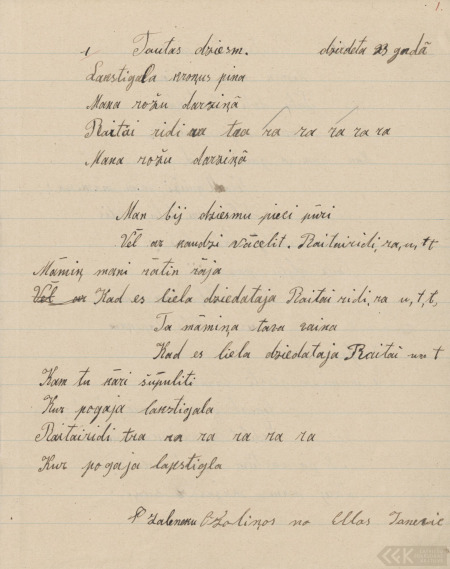 1.
1 Tautas dziesm. dzirdeta 23 gadā
Lakstigala kronus pina
Mana rožu darziņā
Raitai ridi ra taa ra ra ra ra ra
Mana rožu darziņā
Man bij dziesmu pieci pūri
Vēl ar kaudzi vācelit. Raitairidi, ra, u, t t
Māmiņ mani rātin rāja
Vēl ar Kad es liela dziedataja Raitai ridi, ra u, t, t,
Ta māmiņa tava vaina
Kad es liela dziedataja Raitai u t
Kam tu kāri šūpuliti
Kur pogaja lakstigala
Raitairidi tra ra ra ra ra ra
Kur pogaja lakstigla
Ozoliņos no Ellas